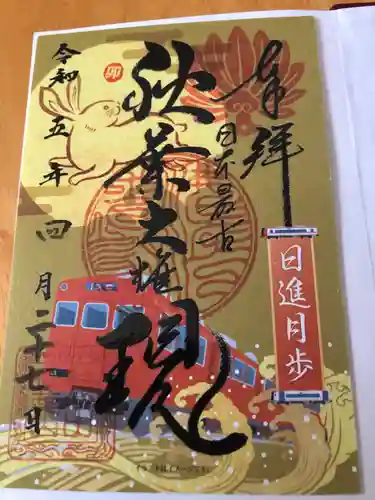 奉拝
日本最古
日進月歩
秋葉大権現
卯
令和五年四月二十七日